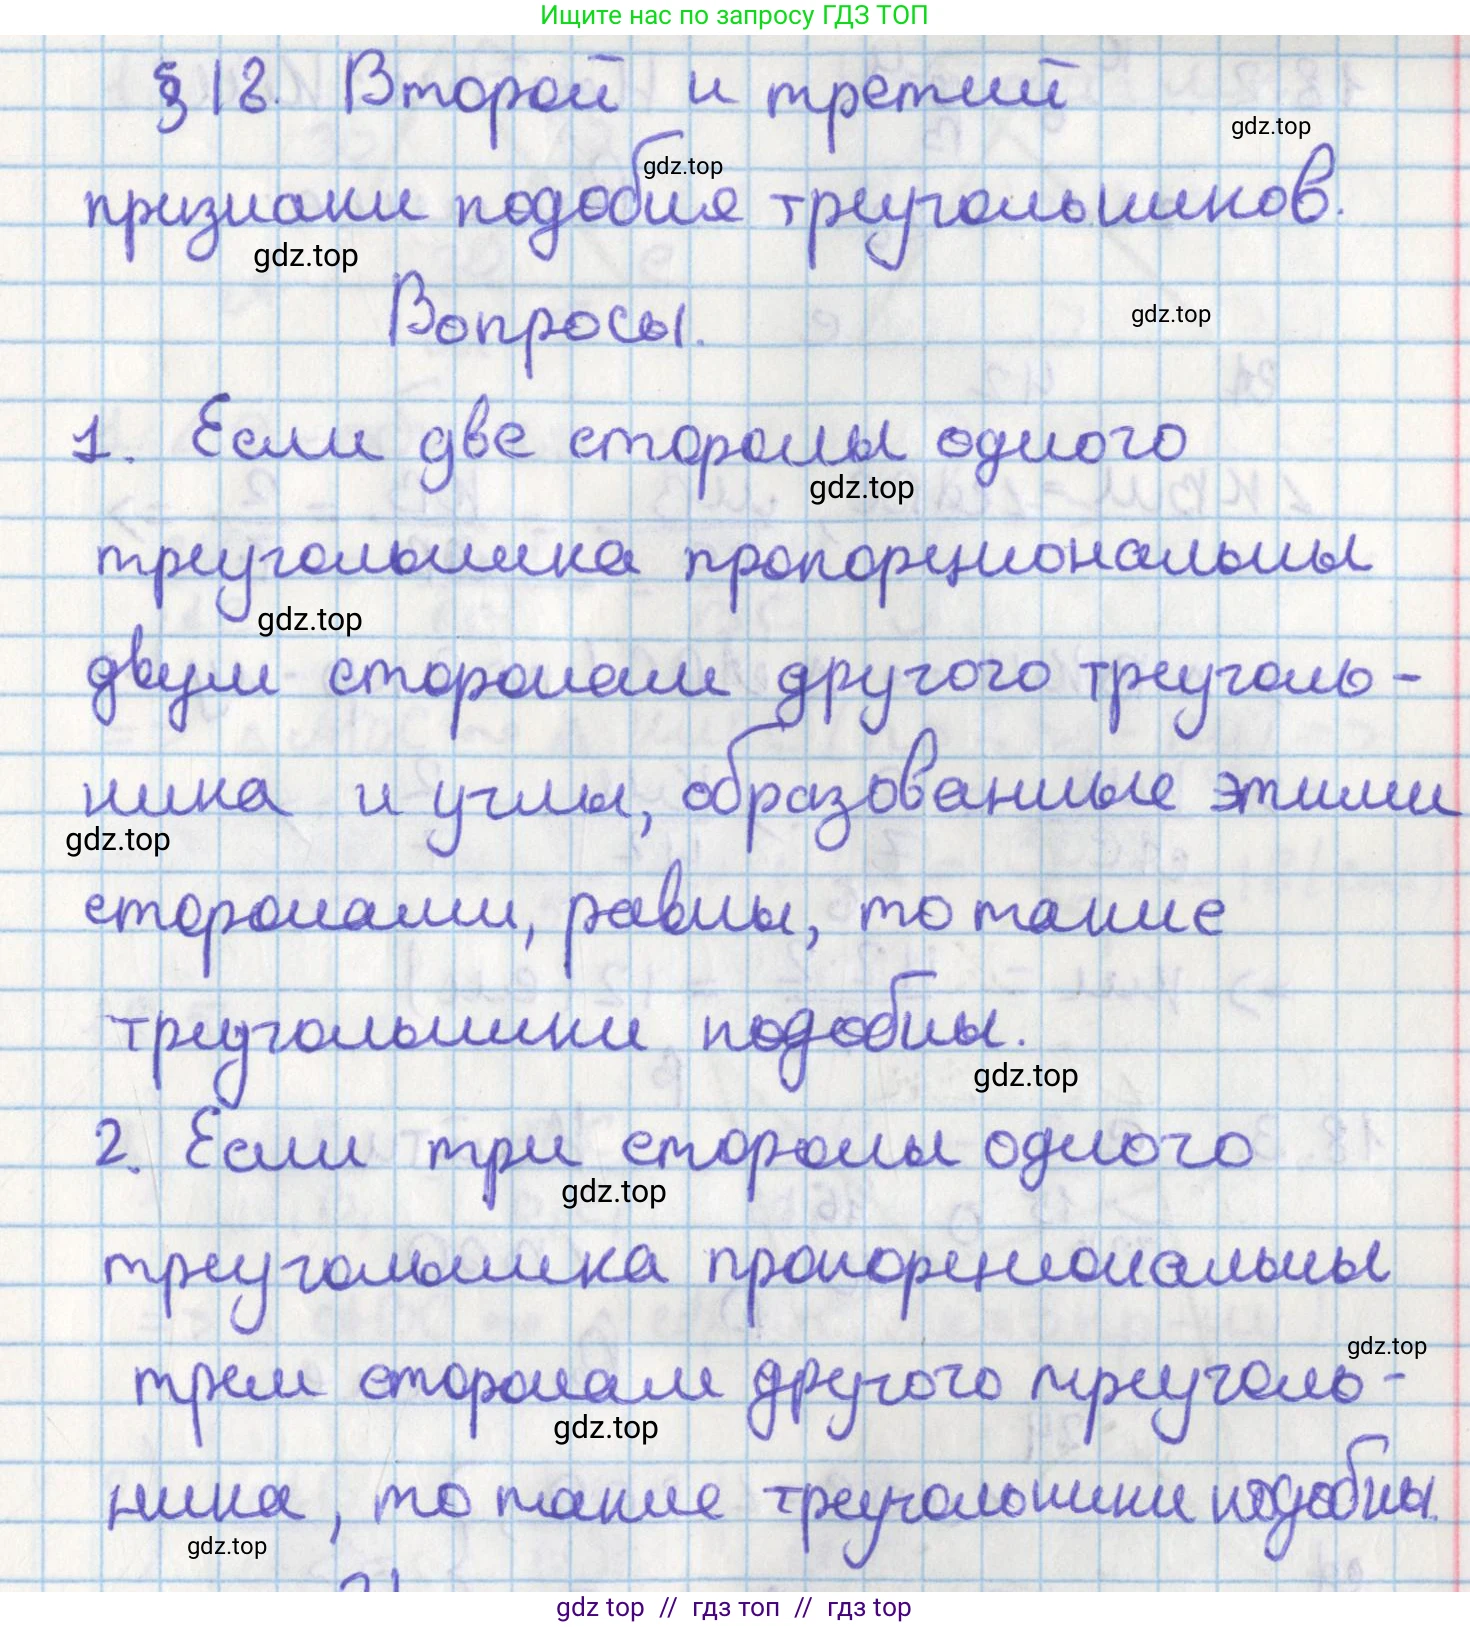 Ищите нас по запросу ГДЗ ТОП
§ 18. Второй и третий
gdz.top
gdz.top
признаки подобия треугольников.
gdz.top
Вопросы.
gdz.top
1. Если две стороны одного
gdz.top
треугольника пропорциональны
gdz.top
двум сторонам другого треуголь-
ника и углы, образованные этими
gdz.top
сторонами, равны, то такие
треугольники подобны.
gdz.top
2. Если три стороны одного
gdz.top
треугольника пропорциональны
gdz.top
трем сторонам другого треуголь-
gdz.top
ника, то такие треугольники подобны.
gdz.top
gdz top // гдз топ // гдз top